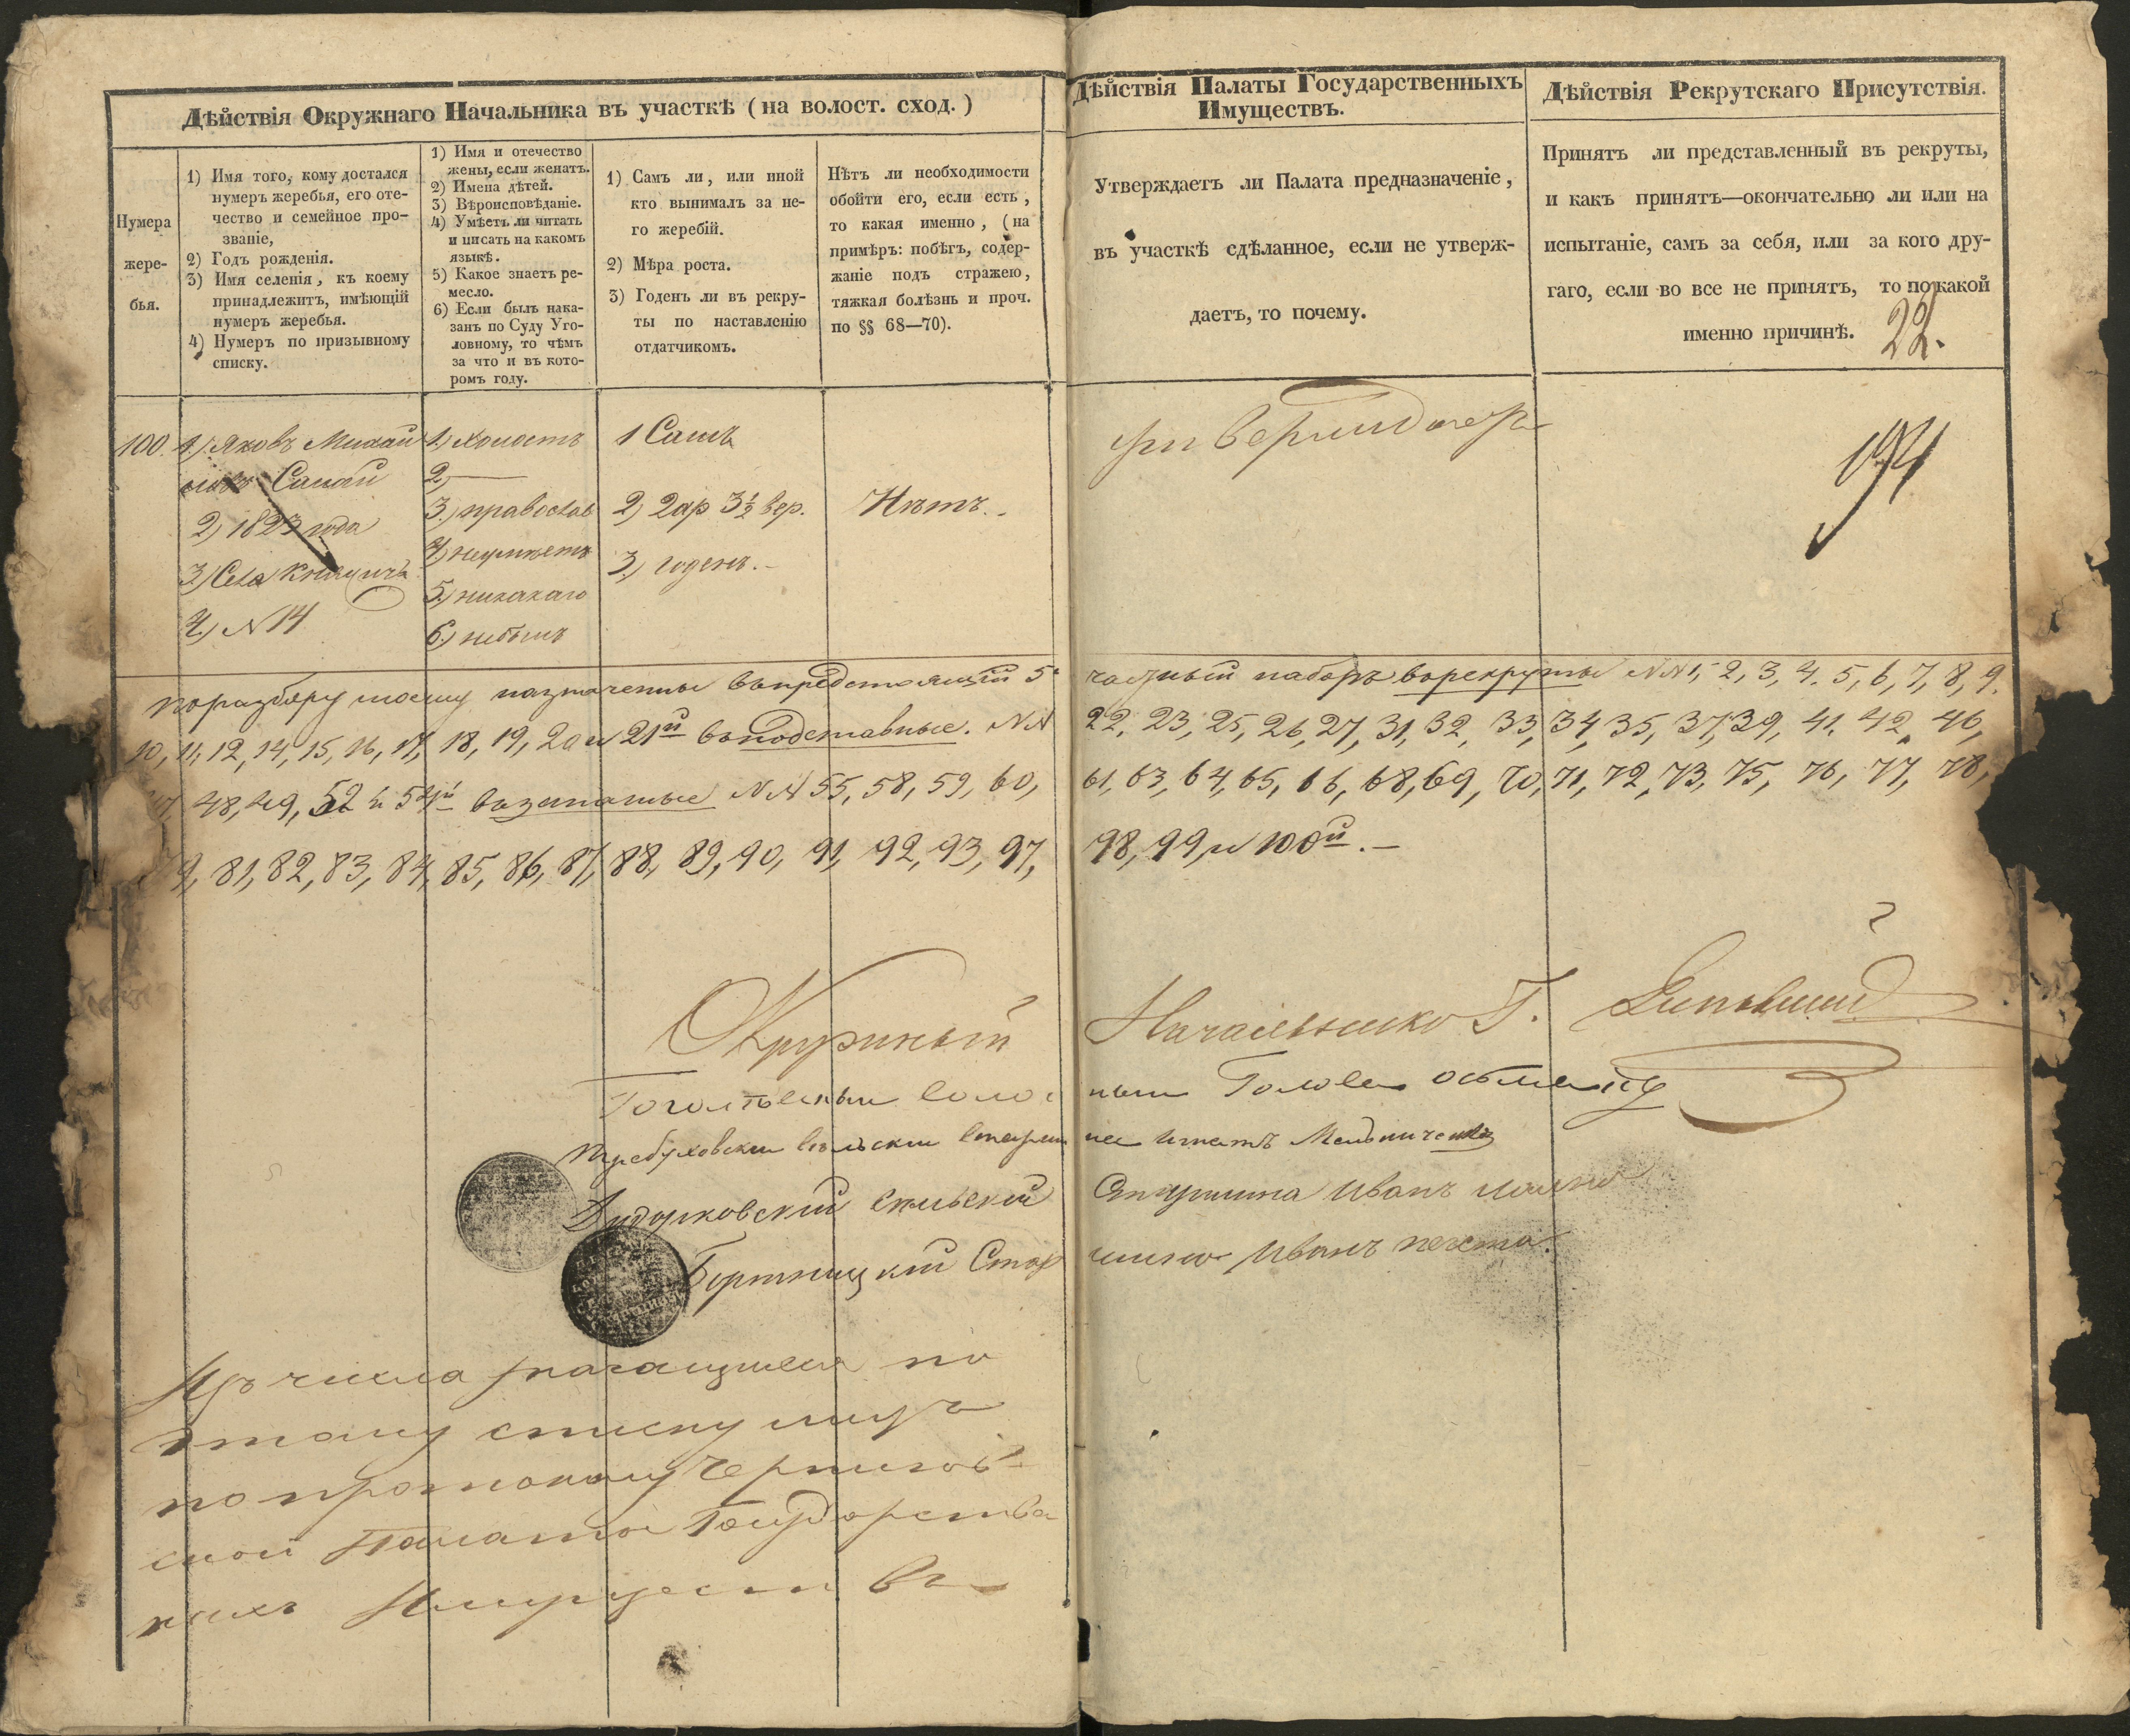 Дѣйствія Окружнаго Начальника въ участкѣ (на волост. сход.)
Нумера
жере-
бья.
1) Имя того, кому достался
нумеръ жеребья, его оте-
чество и семейное про-
званіе,
2) Годъ рожденія.
3) Имя селенія, къ коему
принадлежитъ, имѣющій
нумеръ жеребья.
4) Нумеръ по призывному
списку.
1) Имя и отечество
жены, если женатъ.
2) Имена дѣтей.
3) Вѣроисповѣданіе.
4) Умѣетъ ли читать
и писать на какомъ
языкѣ.
5) Какое знаетъ ре-
месло.
6) Если былъ нака-
занъ по Суду Уго-
ловному, то чѣмъ
за что и въ кото-
ромъ году.
1) Самъ ли, или иной
кто вынималъ за не-
го жеребій.
2) Мѣра роста.
3) Годенъ ли въ рекру-
ты по наставленію
отдатчикомъ.
Нѣтъ ли необходимости
обойти его, если есть,
то какая именно, (на
примѣръ: побѣгъ, содер-
жаніе подъ стражею,
тяжкая болѣзнь и проч.
по §§ 68—70).
Дѣйствія Палаты Государственныхъ
Имуществъ.
Утверждаетъ ли Палата предназначеніе,
въ участкѣ сдѣланное, если не утверж-
даетъ, то почему.
Дѣйствія Рекрутскаго Присутствія.
Принятъ ли представленный въ рекруты,
и какъ принятъ—окончательно ли или на
испытаніе, самъ за себя, или за кого дру-
гаго, если во все не принятъ, то по какой
именно причинѣ.
22.
100.
1) Яковъ Михай
ловъ
2) 1823 года
3) Села Княжичъ
4) N 14
1) холостъ
2) —
3) православ
4) неумѣетъ
5) никакаго
6) небылъ
1 Самъ
2) 2 ар 3½ вер.
3) годенъ. -
Нѣтъ.
194
по разбору моему назначенны въ предстоящій 5й
частный наборъ в рекруты NN 1, 2, 3, 4, 5, 6, 7, 8, 9,
10, 11, 12, 14, 15, 16, 17, 18, 19, 20 и 21й въ подставные. NN
22, 23, 25, 26, 27, 31, 32, 33, 34, 35, 37, 39, 41, 42, 46,
47, 48, 49, 52 и 54й в запасные NN 55, 58, 59, 60,
61, 63, 64, 65, 66, 68, 69, 70, 71, 72, 73, 75, 76, 77, 78,
79, 81, 82, 83, 84, 85, 86, 87, 88, 89, 90, 91, 92, 93, 97,
98, 99, и 100й. —
Окружный
Начальникъ Г.
Гоголевскій воло
ный Голова
Требуховскій сельскій старши
на Игнатъ Мельниченко
Дударковскій сельскій
Старшина Иванъ
Бортницкій Стар
шина Иванъ
Изъ числа значащихся по
этому списку лицъ
по протоколу Чернигов-
ской Палаты Государствен
ныхъ Имуществъ